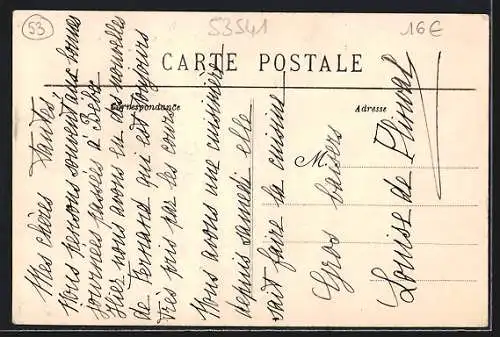 53
53541
16€
CARTE POSTALE
Correspondance
Adresse
M
Mes chères Tantes
Nous pensons souvent aux bonnes
journées passées à
Hier nous avons eu des nouvelles
de Fernand qui est toujours
très pris par les cours
Nous avons une cuisinière
depuis samedi elle
sait faire la cuisine
Gros baisers
Louise de